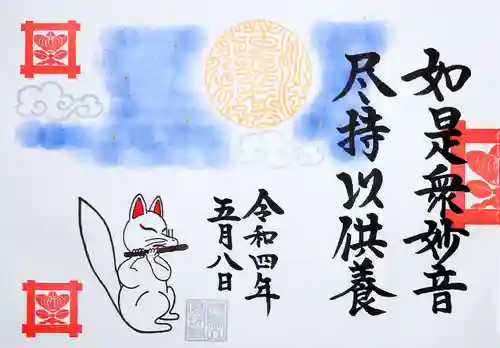 如是衆妙音
尽持以供養
令和四年
五月八日